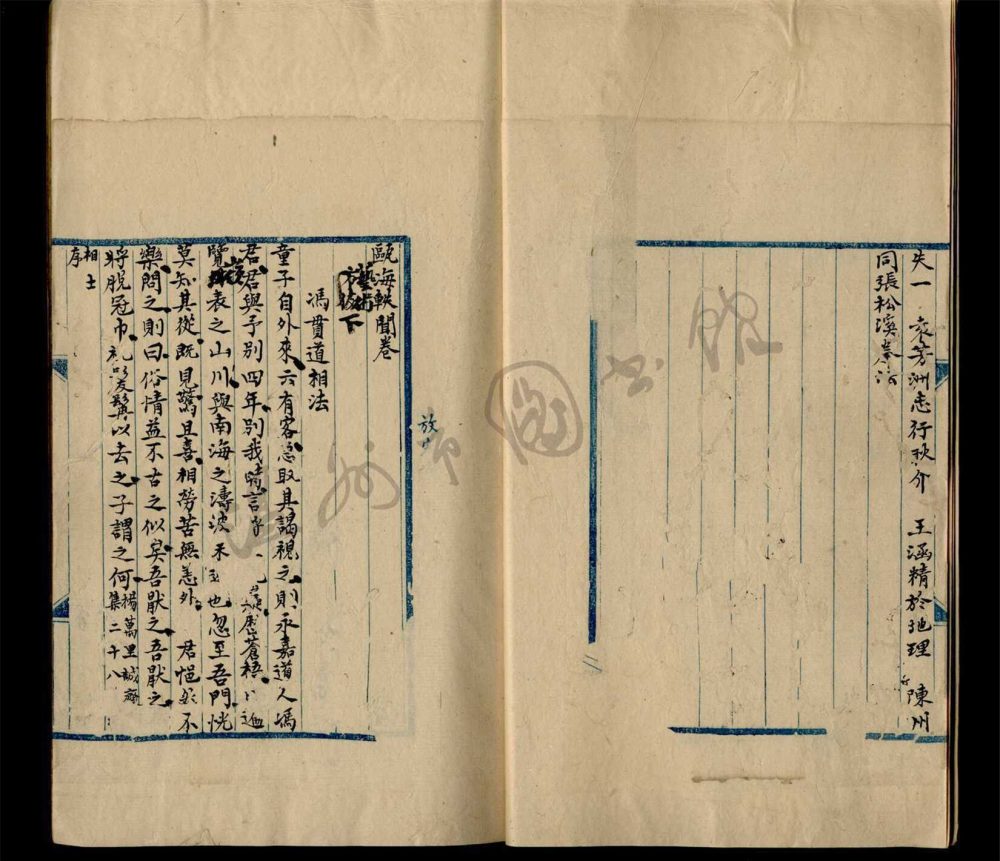 失一 袁芳洲志行狄介 王涵精於地理 陳州
同張松溪
甌海軼聞卷
藝術下
馮貫道相法
童子自外來云有客急取其謁視之則永嘉道人馮
君君與予別四年別我時言
覽 表之山川與南海之濤波 也忽至吾門恍
莫知其從既見驚且喜相勞苦無恙外 君悒然不
樂問之則曰俗情益不古之似矣吾厭之吾厭之
將脫冠巾 髮鬄以去之子謂之何 楊萬里誠齋
集二十八
相士
序
放大
州市圖書館